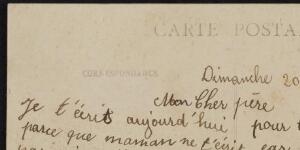 CARTE POSTA
CORRESPONDANCE
Dimanche 20
Mon Cher père
Je t'écrit aujourd'hui pour t
parce que maman ne t'écrit car